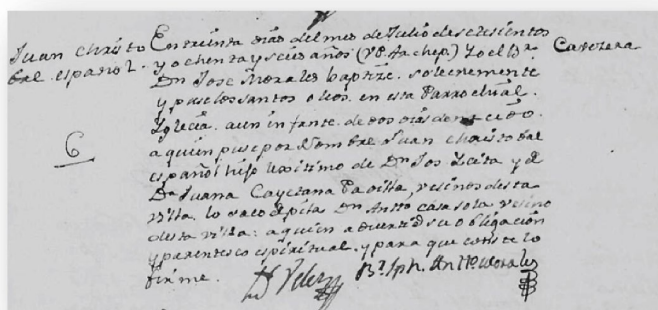 Juan Christo
bal español.
6
En treinta dias del mes de Julio de setesientos
y ochenta y seis años (Vº Archep.) Yo el Br
Cavezera
Dn Jose Morales baptize. solenemente
y puse los santos oleos. en esta Parrochial.
Yglecia. a un infante. de dos dias de nacido.
a quien puse por nombre Juan Christobal
español hijo lexitimo de Dn Jos y de
Da Juana Cayetana Padilla, vesinos desta
villa. lo saco d pila Dn Antto casasola vesino
desta villa: a quien adverti d su obligación
y parentesco espiritual. y para que coste lo
firme.
Br Jph. Antto Morales